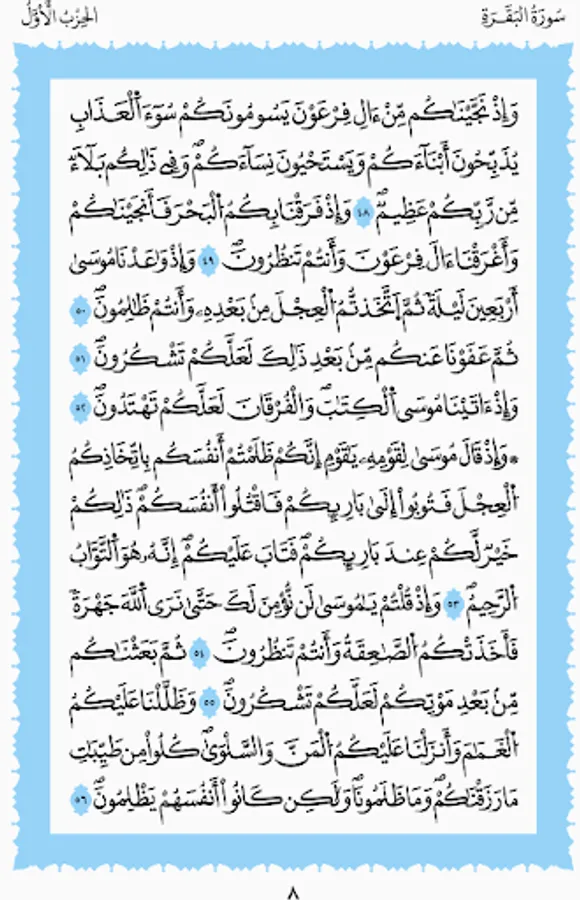 سُورَةُ الْبَقَرَةِ
الحِزْبُ الْأَوَّلُ
وَإِذْ نَجَّيْنَٰكُم مِّنْ ءَالِ فِرْعَوْنَ يَسُومُونَكُمْ سُوٓءَ اَ۬لْعَذَابِ
يُذَبِّحُونَ أَبْنَآءَكُمْ وَيَسْتَحْيُونَ نِسَآءَكُمْۖ وَفِے ذَٰلِكُم بَلَآءٞ
مِّن رَّبِّكُمْ عَظِيمٞۖ ٤٨ وَإِذْ فَرَقْنَا بِكُمُ اُ۬لْبَحْرَ فَأَنجَيْنَٰكُمْ
وَأَغْرَقْنَا ءَالَ فِرْعَوْنَ وَأَنتُمْ تَنظُرُونَۖ ٤٩ وَإِذْ وَٰعَدْنَا مُوسَىٰ
أَرْبَعِينَ لَيْلَةٗ ثُمَّ اَ۪تَّخَذتُّمُ اُ۬لْعِجْلَ مِنۢ بَعْدِهِۦ وَأَنتُمْ ظَٰلِمُونَۖ ٥٠
ثُمَّ عَفَوْنَا عَنكُم مِّنۢ بَعْدِ ذَٰلِكَ لَعَلَّكُمْ تَشْكُرُونَۖ ٥١
وَإِذْ ءَاتَيْنَا مُوسَى اَ۬لْكِتَٰبَ وَالْفُرْقَانَ لَعَلَّكُمْ تَهْتَدُونَۖ ٥٢
* وَإِذْ قَالَ مُوسَىٰ لِقَوْمِهِۦ يَٰقَوْمِ إِنَّكُمْ ظَلَمْتُمْ أَنفُسَكُم بِاتِّخَاذِكُمُ
اُ۬لْعِجْلَ فَتُوبُوٓاْ إِلَىٰ بَارِئِكُمْ فَاقْتُلُوٓاْ أَنفُسَكُمْۖ ذَٰلِكُمْ
خَيْرٞ لَّكُمْ عِندَ بَارِئِكُمْۖ فَتَابَ عَلَيْكُمْۖ إِنَّهُۥ هُوَ اَ۬لتَّوَّابُ
اُ۬لرَّحِيمُۖ ٥٣ وَإِذْ قُلْتُمْ يَٰمُوسَىٰ لَن نُّؤْمِنَ لَكَ حَتَّىٰ نَرَى اَ۬للَّهَ جَهْرَةٗ
فَأَخَذَتْكُمُ اُ۬لصَّٰعِقَةُ وَأَنتُمْ تَنظُرُونَۖ ٥٤ ثُمَّ بَعَثْنَٰكُم
مِّنۢ بَعْدِ مَوْتِكُمْ لَعَلَّكُمْ تَشْكُرُونَۖ ٥٥ وَظَلَّلْنَا عَلَيْكُمُ
اُ۬لْغَمَٰمَ وَأَنزَلْنَا عَلَيْكُمُ اُ۬لْمَنَّ وَالسَّلْوَىٰۖ كُلُواْ مِن طَيِّبَٰتِ
مَا رَزَقْنَٰكُمْۖ وَمَا ظَلَمُونَا وَلَٰكِن كَانُوٓاْ أَنفُسَهُمْ يَظْلِمُونَۖ ٥٦
٨